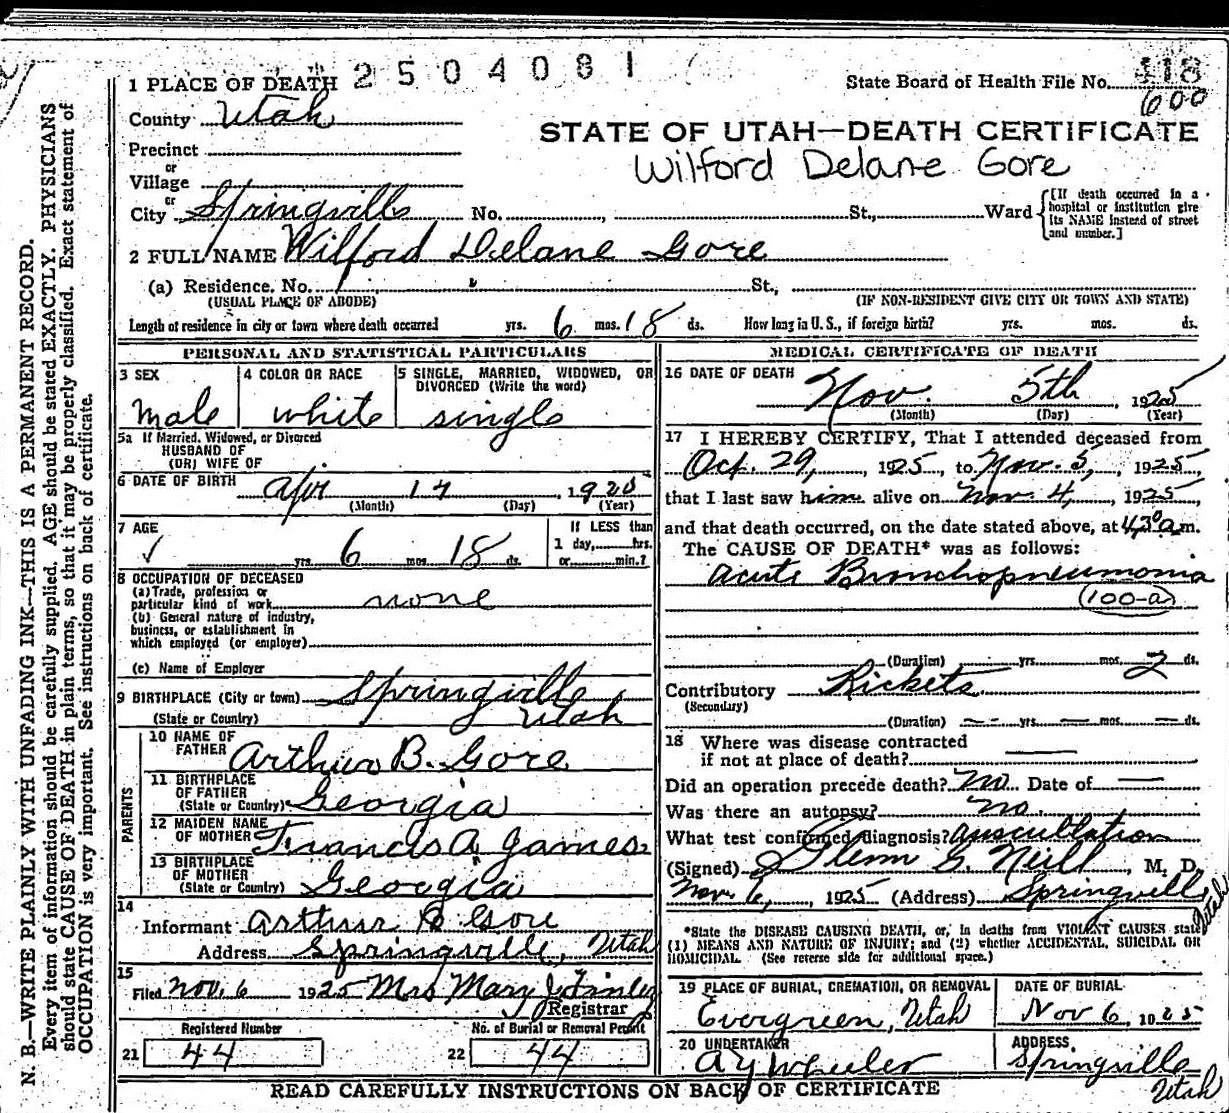 2504081
1 PLACE OF DEATH
State Board of Health File No. 418
600
County Utah
STATE OF UTAH—DEATH CERTIFICATE
Precinct
Wilford Delane Gore
or
Village
or
City Springville No. , St., Ward
[If death occurred in a hospital or institution give its NAME instead of street and number.]
2 FULL NAME Wilford Delane Gore
(a) Residence. No. St.,
(USUAL PLACE OF ABODE) (IF NON-RESIDENT GIVE CITY OR TOWN AND STATE)
Length of residence in city or town where death occurred yrs. 6 mos. 18 ds. How long in U. S., if foreign birth? yrs. mos. ds.
PERSONAL AND STATISTICAL PARTICULARS
3 SEX
male
4 COLOR OR RACE
white
5 SINGLE, MARRIED, WIDOWED, OR DIVORCED (Write the word)
single
5a If Married, Widowed, or Divorced
HUSBAND OF
(OR) WIFE OF
6 DATE OF BIRTH Apr 17, 1925
(Month) (Day) (Year)
7 AGE
yrs. 6 mos. 18 ds.
If LESS than
1 day, hrs.
or min.?
8 OCCUPATION OF DECEASED
(a) Trade, profession or
particular kind of work none
(b) General nature of industry,
business, or establishment in
which employed (or employer)
(c) Name of Employer
9 BIRTHPLACE (City or town) Springville
(State or Country) Utah
PARENTS
10 NAME OF
FATHER Arthur B. Gore
11 BIRTHPLACE
OF FATHER
(State or Country) Georgia
12 MAIDEN NAME
OF MOTHER Francis A James
13 BIRTHPLACE
OF MOTHER
(State or Country) Georgia
14
Informant Arthur B Gore
Address Springville, Utah
15
Filed Nov. 6 1925 Mrs Mary J Finley
Registrar
Registered Number No. of Burial or Removal Permit
21 44 22 44
MEDICAL CERTIFICATE OF DEATH
16 DATE OF DEATH
Nov. 5th, 1925
(Month) (Day) (Year)
17 I HEREBY CERTIFY, That I attended deceased from
Oct. 29, 1925, to Nov. 5, 1925,
that I last saw him alive on Nov. 4, 1925,
and that death occurred, on the date stated above, at 4,30 a.m.
The CAUSE OF DEATH* was as follows:
Acute Bronchopneumonia
100-a
(Duration) yrs. mos. 2 ds.
Contributory Rickets
(Secondary)
(Duration) — yrs. — mos. — ds.
18 Where was disease contracted
if not at place of death?
Did an operation precede death? No. Date of —
Was there an autopsy? no.
What test confirmed diagnosis? auscultation
(Signed) Glenn G. Neill, M. D.
Nov. 6, 1925 (Address) Springville
Utah
*State the DISEASE CAUSING DEATH, or, in deaths from VIOLENT CAUSES state
(1) MEANS AND NATURE OF INJURY; and (2) whether ACCIDENTAL, SUICIDAL OR
HOMICIDAL. (See reverse side for additional space.)
19 PLACE OF BURIAL, CREMATION, OR REMOVAL
Evergreen, Utah
DATE OF BURIAL
Nov 6, 1925
20 UNDERTAKER
A Y Wheeler
ADDRESS
Springville
Utah
READ CAREFULLY INSTRUCTIONS ON BACK OF CERTIFICATE
N. B.—WRITE PLAINLY WITH UNFADING INK—THIS IS A PERMANENT RECORD.
Every item of information should be carefully supplied. AGE should be stated EXACTLY. PHYSICIANS
should state CAUSE OF DEATH in plain terms, so that it may be properly classified. Exact statement of
OCCUPATION is very important. See instructions on back of certificate.